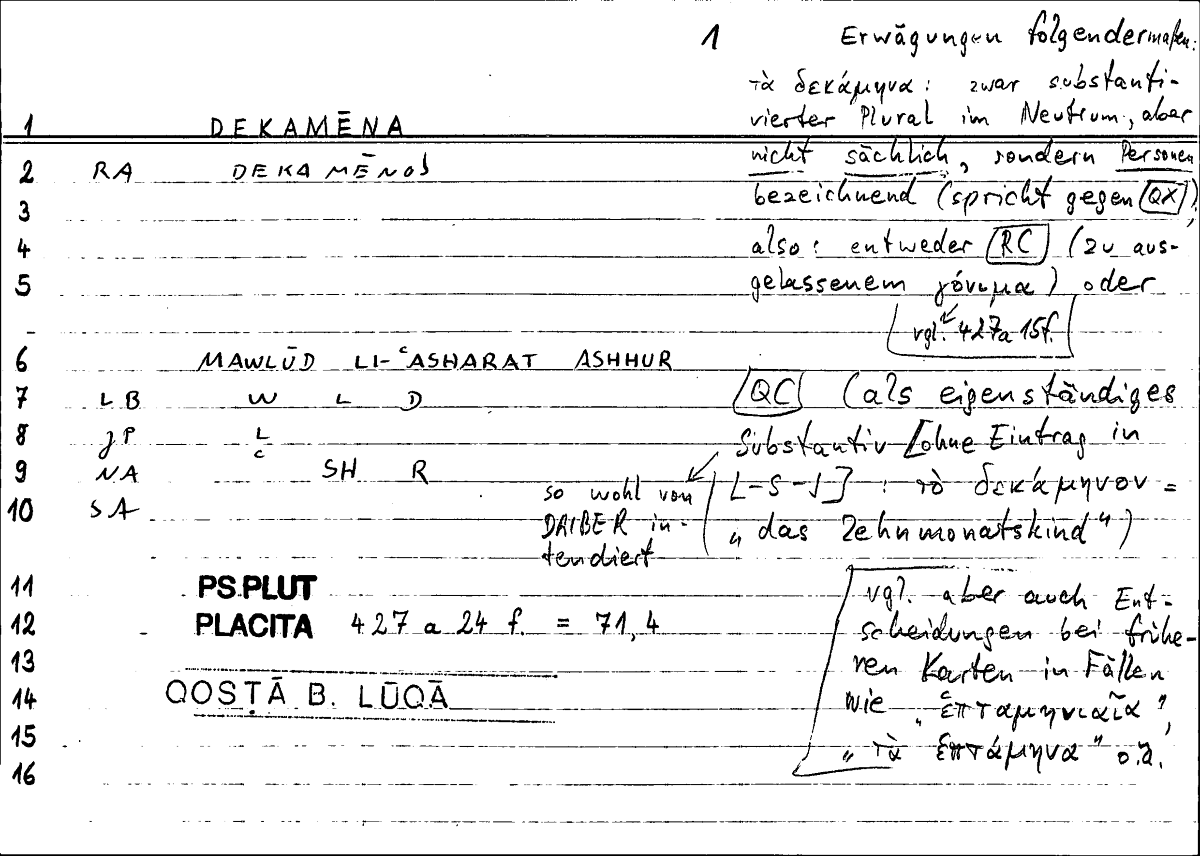 1
Erwägungen folgendermaßen:
τὰ δεκάμηνα: zwar substanti-
vierter Plural im Neutrum, aber
nicht sächlich, sondern Personen
bezeichnend (spricht gegen QX),
also: entweder RC (zu aus-
gelassenem γόνιμα) oder
vgl. 427a 15f.
QC (als eigenständiges
Substantiv [ohne Eintrag in
L-S-J] : τὸ δεκάμηνον =
„das Zehnmonatskind")
so wohl von
DAIBER in-
tendiert
vgl. aber auch Ent-
scheidungen bei frühe-
ren Karten in Fällen
wie „ἑπταμηνιαῖα",
„τὰ ἑπτάμηνα" o.ä.
1 DEKAMĒNA
2 RA DEKAMĒNOS
3
4
5
-
6 MAWLŪD LI-ʿASHARAT ASHHUR
7 LB W L D
8 JP L
9 NA ʿ SH R
10 SA
11 PS.PLUT
12 PLACITA 427 a 24 f. = 71,4
13
14 QOSṬĀ B. LŪQĀ
15
16